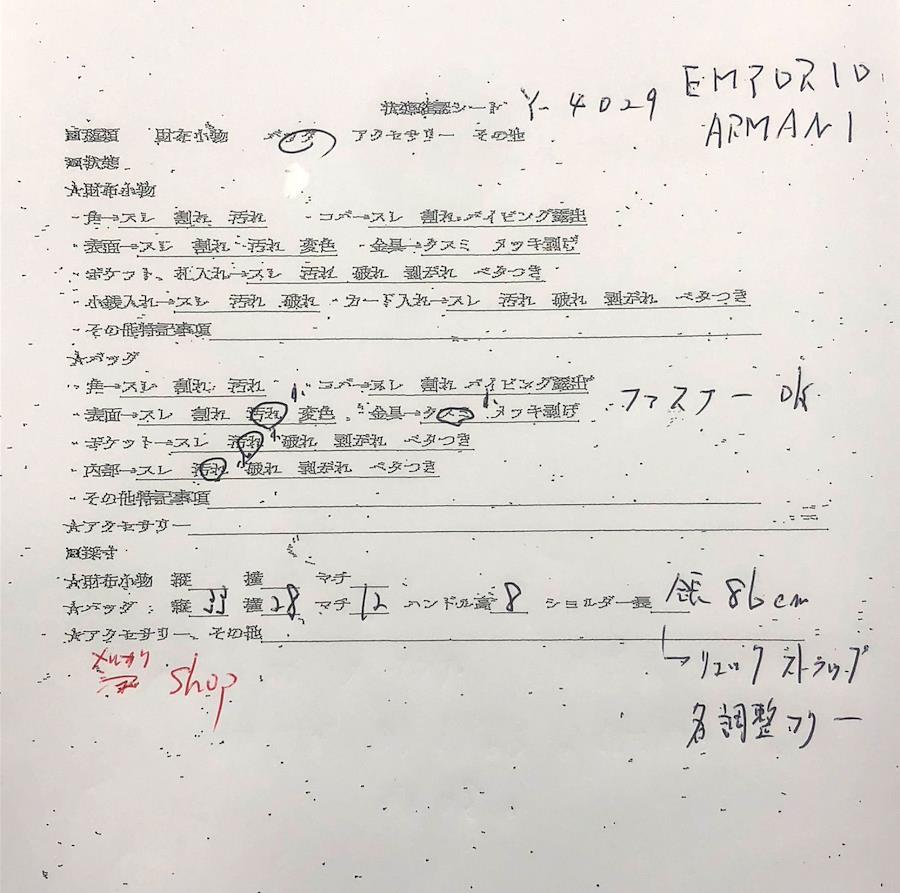 状態確認シート Y-4029 EMPORIO
ARMANI
■種類 財布小物 バッグ アクセサリー その他
■状態
★財布小物
・角→スレ 割れ 汚れ ・コバ→スレ 割れ パイピング露出
・表面→スレ 割れ 汚れ 変色 ・金具→クスミ メッキ剥げ
・ポケット、札入れ→スレ 汚れ 破れ 剥がれ ベタつき
・小銭入れ→スレ 汚れ 破れ ・カード入れ→スレ 汚れ 破れ 剥がれ ベタつき
・その他特記事項
★バッグ
・角→スレ 割れ 汚れ ・コバ→スレ 割れ パイピング露出
・表面→スレ 割れ 汚れ 変色 ・金具→クスミ メッキ剥げ ファスナー ok
・ポケット→スレ 汚れ 破れ 剥がれ ベタつき
・内部→スレ 汚れ 破れ 剥がれ ベタつき
・その他特記事項
★アクセサリー
■採寸
★財布小物 縦 横 マチ
★バッグ：縦 33 横 28 マチ 12 ハンドル高 8 ショルダー長 全長 86cm
★アクセサリー、その他
リュックストラップ
メルカリ shop
調整フリー